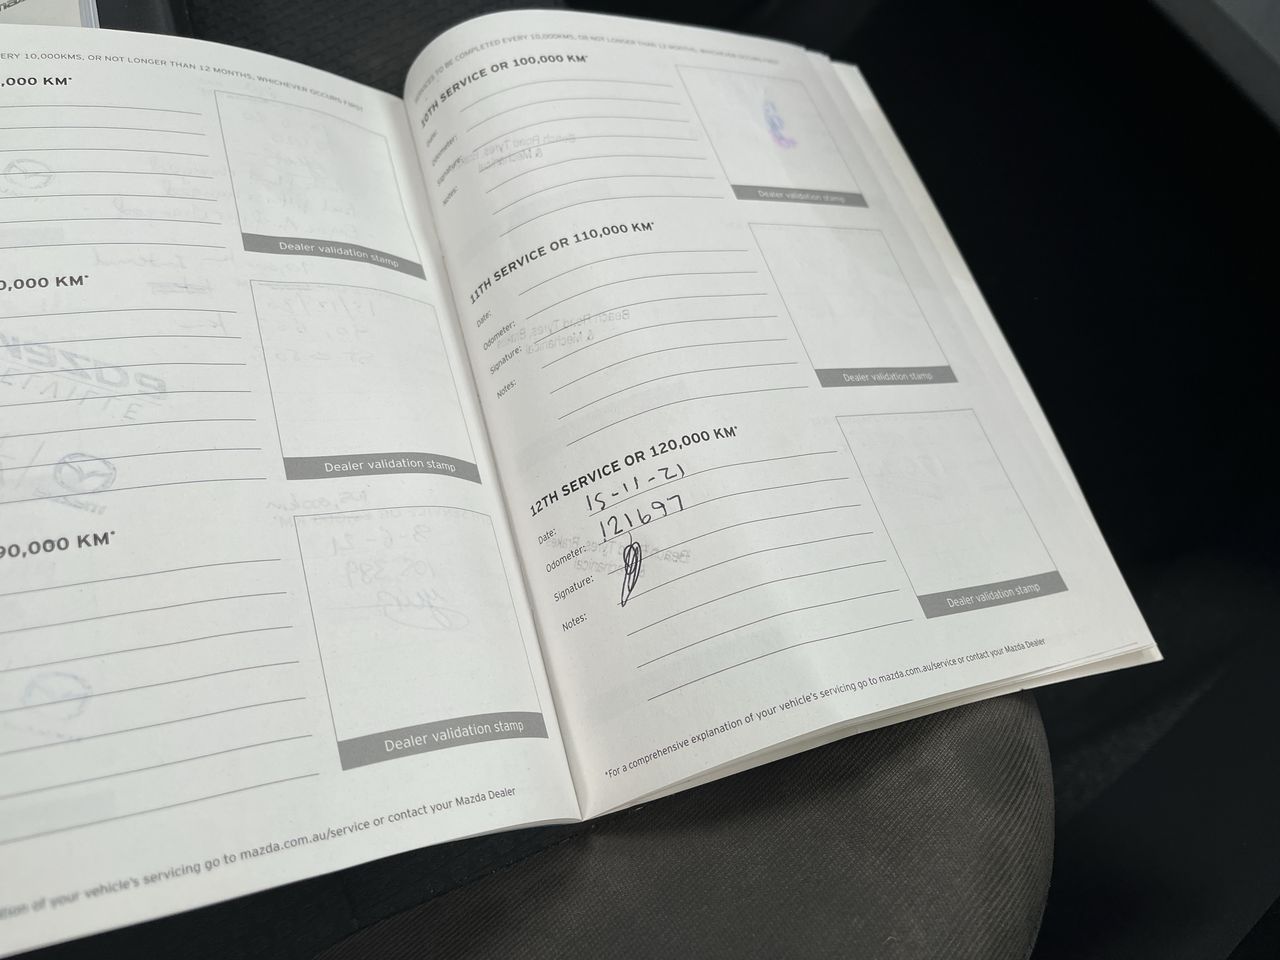 ERY 10,000KMS, OR NOT LONGER THAN 12 MONTHS, WHICHEVER OCCURS FIRST
,000 KM*
Dealer validation stamp
0,000 KM*
Dealer validation stamp
90,000 KM*
Dealer validation stamp
ation of your vehicle's servicing go to mazda.com.au/service or contact your Mazda Dealer
SERVICES TO BE COMPLETED EVERY 10,000KMS, OR NOT LONGER THAN 12 MONTHS, WHICHEVER OCCURS FIRST
10TH SERVICE OR 100,000 KM*
Date:
Odometer:
Signature:
Notes:
Dealer validation stamp
11TH SERVICE OR 110,000 KM*
Date:
Odometer:
Signature:
Notes:
Dealer validation stamp
12TH SERVICE OR 120,000 KM*
Date: 15-11-21
Odometer: 121697
Signature:
Notes:
Dealer validation stamp
*For a comprehensive explanation of your vehicle's servicing go to mazda.com.au/service or contact your Mazda Dealer